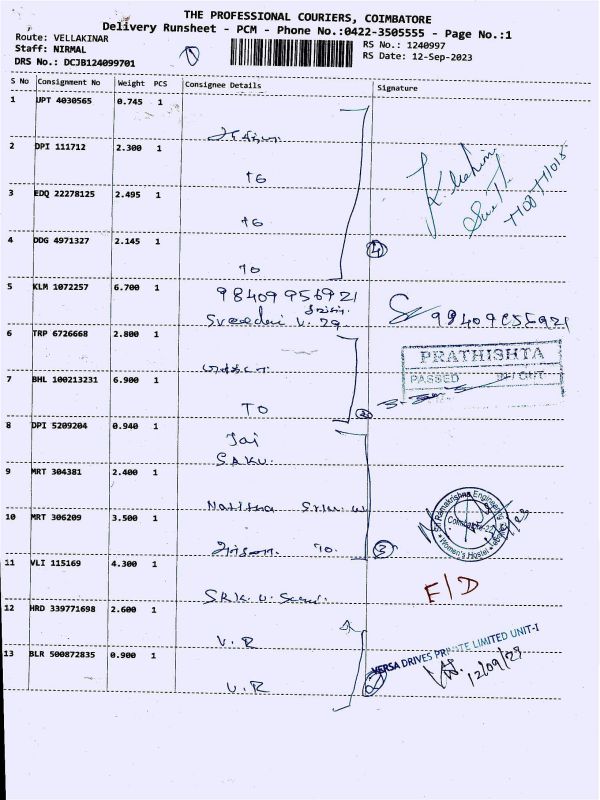 THE PROFESSIONAL COURIERS, COIMBATORE
Delivery Runsheet - PCM - Phone No.:0422-3505555 - Page No.:1
Route: VELLAKINAR
RS No.: 1240997
Staff: NIRMAL
RS Date: 12-Sep-2023
DRS No.: DCJB124099701
S No Consignment No Weight PCS Consignee Details Signature
1 UPT 4030565 0.745 1
2 DPI 111712 2.300 1
TO
3 EDQ 22278125 2.495 1
TO
4 DDG 4971327 2.145 1
TO
4
5 KLM 1072257 6.700 1
98409 956921
6 TRP 6726668 2.800 1
PRATHISHTA
PASSED IN / OUT
7 BHL 100213231 6.900 1
TO
2
8 DPI 5209204 0.940 1
Jai
9 MRT 304381 2.400 1
10 MRT 306209 3.500 1
TO.
3
Sri Ramakrishna Engineering
Coimbatore-22
Women's Hostel
11 VLI 115169 4.300 1
E/D
12 HRD 339771698 2.600 1
V.R
13 BLR 500872835 0.900 1
V.R
2
VERSA DRIVES PRIVATE LIMITED UNIT-I
12/09/23